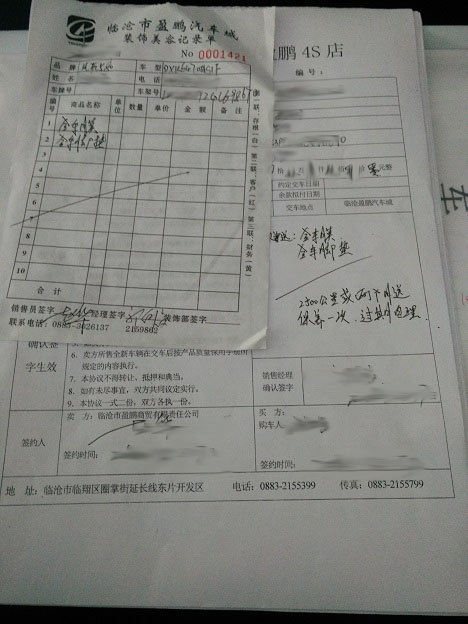 临沧市盈鹏汽车城
装饰美容记录单
No 0001421
品牌
车型
姓名
电话
车牌号
车架号
编号 商品名称 单位 数量 单价 金额 备注
1 全车膜
2 全车脚垫
3
4
5
6
7
8
9
10
合计
第一联：存根（白） 第二联：客户（红） 第三联：财务（黄）
销售员签字 经理签字 装饰部签字
联系电话：0883- 2159862
鹏 4S 店
编号：
元整
约定交车日期
余款拟付日期
交车地点 临沧盈鹏汽车城
送：全车膜
全车脚垫
保养一次
确认签
字生效
6、卖方所售全新车辆在交车后按产品质量保用手册所
规定的内容执行。
7、本协议不得转让、抵押和典当。
8、如有未尽事宜，双方共同议定实行。
9、本协议一式二份，双方各执一份。
销售经理
确认签字
签约人
卖方：临沧市盈鹏商贸有限责任公司
签约时间：
买方：
购车人：
签约时间：
地址：临沧市临翔区圈掌街延长线东片开发区 电话：0883-2155399 传真：0883-2155799
车